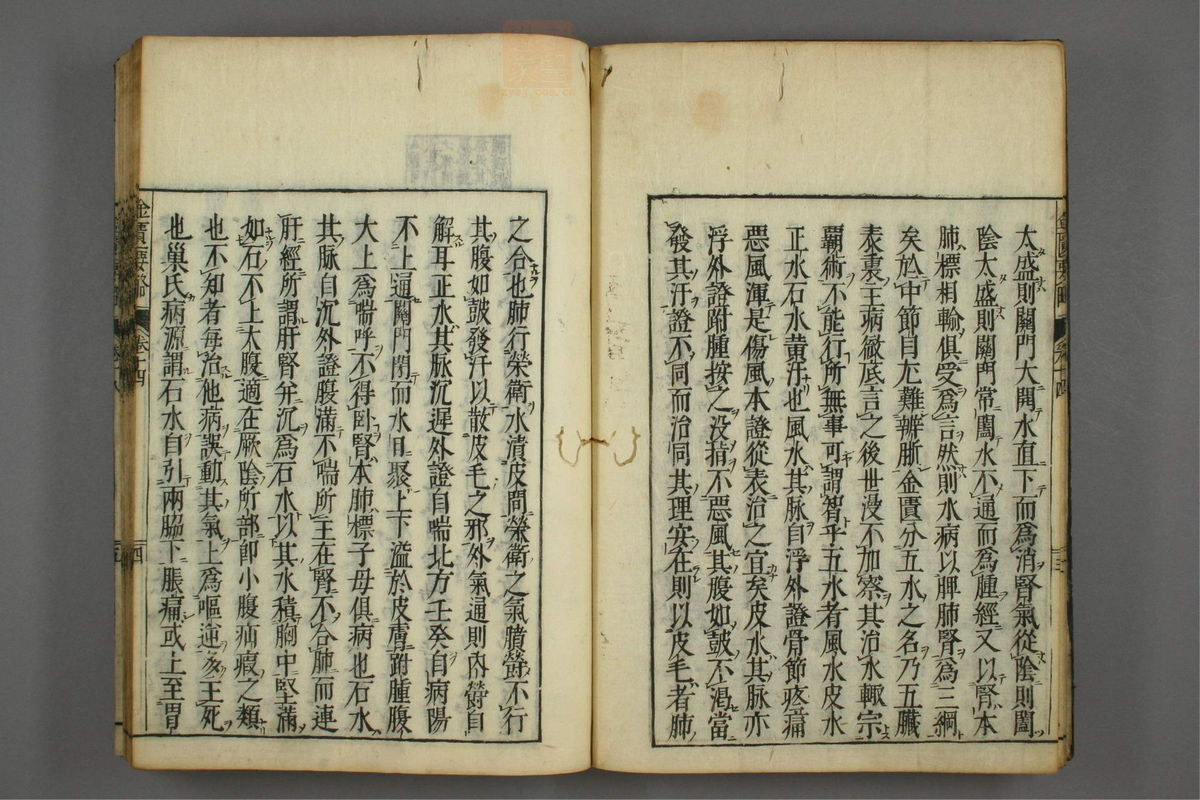 太盛則關門大開水直下而爲消腎氣從陰則闔
陰太盛則關門常闔水不通而爲腫經又以腎本
肺標相輸俱受爲言然則水病以脾肺腎爲三綱
矣於中節目尤難辨晰金匱分五水之名乃五臟
表裏主病徹底言之後世漫不加察其治水輒宗
霸術不能行所無事可謂智乎五水者風水皮水
正水石水黄汗也風水其脉自浮外證骨節疼痛
惡風渾是傷風本證從表治之宜矣皮水其脉亦
浮外證胕腫按之没指不惡風其腹如鼓不渴當
發其汗證不同而治同其理安在則以皮毛者肺
之合也肺行榮衛水漬皮間榮衛之氣膹鬱不行
其腹如鼓發汗以散皮毛之邪外氣通則内鬱自
解耳正水其脉沉遲外證自喘北方壬癸自病陽
不上通關門閉而水日聚上下溢於皮膚胕腫腹
大上爲喘呼不得臥腎本肺標子母俱病也石水
其脉自沉外證腹滿不喘所主在腎不合肺而連
肝經所謂肝腎并沉爲石水以其水積胸中堅滿
如石不上大腹適在厥陰所部卽小腹疝瘕之類
也不知者每治他病誤動其氣上爲嘔逆多主死
也巢氏病源謂石水自引兩脇下脹痛或上至胃